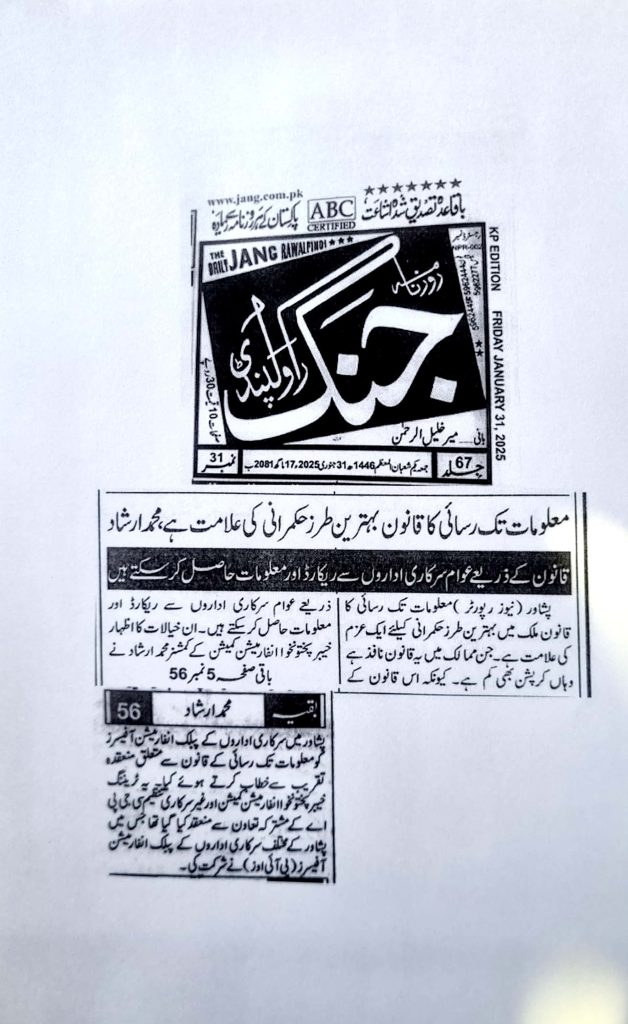 www.jang.com.pk
ABC
CERTIFIED
باقاعدہ تصدیق شدہ اشاعت
THE
DAILY JANG RAWALPINDI
روزنامہ
جنگ
راولپنڈی
KP EDITION FRIDAY JANUARY 31, 2025
صفحات 10 قیمت 30 روپے
بانی۔۔۔ میر خلیل الرحمٰن
جلد 67
جمعہ یکم شعبان المعظم 1446ھ 31 جنوری 2025ء 17 ماگھ 2081 ب
نمبر 31
معلومات تک رسائی کا قانون بہترین طرز حکمرانی کی علامت ہے، محمد ارشاد
قانون کے ذریعے عوام سرکاری اداروں سے ریکارڈ اور معلومات حاصل کر سکتے ہیں
پشاور (نیوز رپورٹر) معلومات تک رسائی کا
قانون ملک میں بہترین طرز حکمرانی کیلئے ایک عزم
کی علامت ہے۔ جن ممالک میں یہ قانون نافذ ہے
وہاں کرپشن بھی کم ہے۔ کیونکہ اس قانون کے
ذریعے عوام سرکاری اداروں سے ریکارڈ اور
معلومات حاصل کر سکتے ہیں۔ ان خیالات کا اظہار
خیبر پختونخوا انفارمیشن کمیشن کے کمشنر محمد ارشاد نے
باقی صفحہ 5 نمبر 56
بقیہ محمد ارشاد 56
پشاور میں سرکاری اداروں کے پبلک انفارمیشن آفیسرز
کو معلومات تک رسائی کے قانون سے متعلق منعقدہ
تقریب سے خطاب کرتے ہوئے کیا۔ یہ ٹریننگ
خیبر پختونخوا انفارمیشن کمیشن اور غیر سرکاری تنظیم سی جی پی
اے کے مشترکہ تعاون سے منعقد کیا گیا تھا جس میں
پشاور کے مختلف سرکاری اداروں کے پبلک انفارمیشن
آفیسرز (پی آئی اوز) نے شرکت کی۔